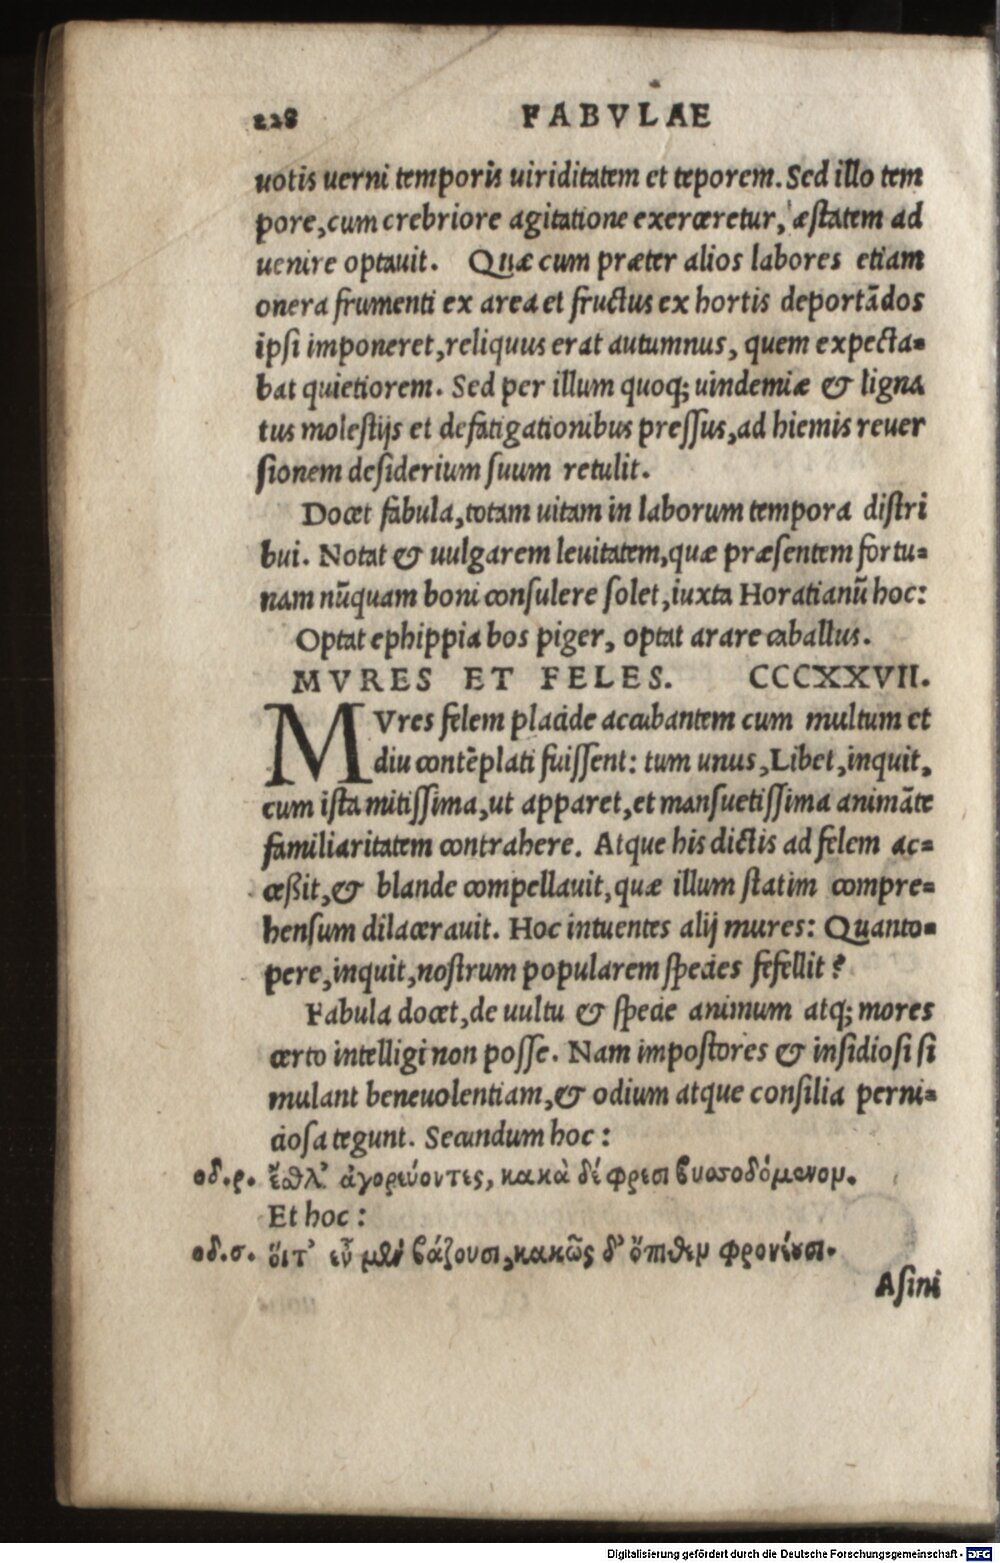 228 FABVLAE
uotis uerni temporis uiriditatem et teporem. Sed illo tem
pore, cum crebriore agitatione exerceretur, æstatem ad
uenire optauit. Quæ cum præter alios labores etiam
onera frumenti ex area et fructus ex hortis deportādos
ipsi imponeret, reliquus erat autumnus, quem expecta-
bat quietiorem. Sed per illum quoq; uindemiæ & ligna
tus molestijs et defatigationibus pressus, ad hiemis reuer
sionem desiderium suum retulit.
Docet fabula, totam uitam in laborum tempora distri
bui. Notat & uulgarem leuitatem, quæ præsentem fortu-
nam nūquam boni consulere solet, iuxta Horatianū hoc:
Optat ephippia bos piger, optat arare caballus.
MVRES ET FELES. CCCXXVII.
MVres felem placide accubantem cum multum et
diu contēplati fuissent: tum unus, Libet, inquit,
cum ista mitissima, ut apparet, et mansuetissima animāte
familiaritatem contrahere. Atque his dictis ad felem ac-
ceßit, & blande compellauit, quæ illum statim compre-
hensum dilacerauit. Hoc intuentes alij mures: Quanto-
pere, inquit, nostrum popularem species fefellit?
Fabula docet, de uultu & specie animum atq; mores
certo intelligi non posse. Nam impostores & insidiosi si
mulant beneuolentiam, & odium atque consilia perni-
ciosa tegunt. Secundum hoc:
οδ.ρ. ἔσθλ' ἀγορεύοντες, κακὰ δέ φρεσι βυσσοδόμευον.
Et hoc:
οδ.σ. ὅιτ' εὖ μὲν βάζουσι, κακῶς δ' ὄπιθεν φρονέουσι.
Asini
Digitalisierung gefördert durch die Deutsche Forschungsgemeinschaft - DFG